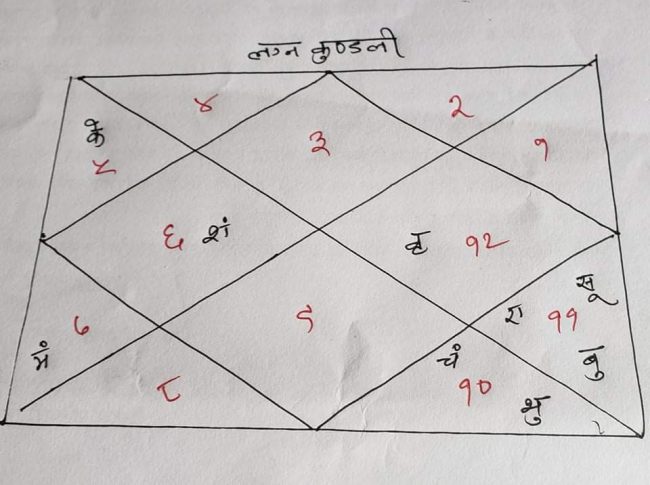 लग्न कुण्डली
४
२
के
३
१
५
६ शं
वृ १२
सू
७
९
रा ११
मं
चं
बु
८
१०
शु